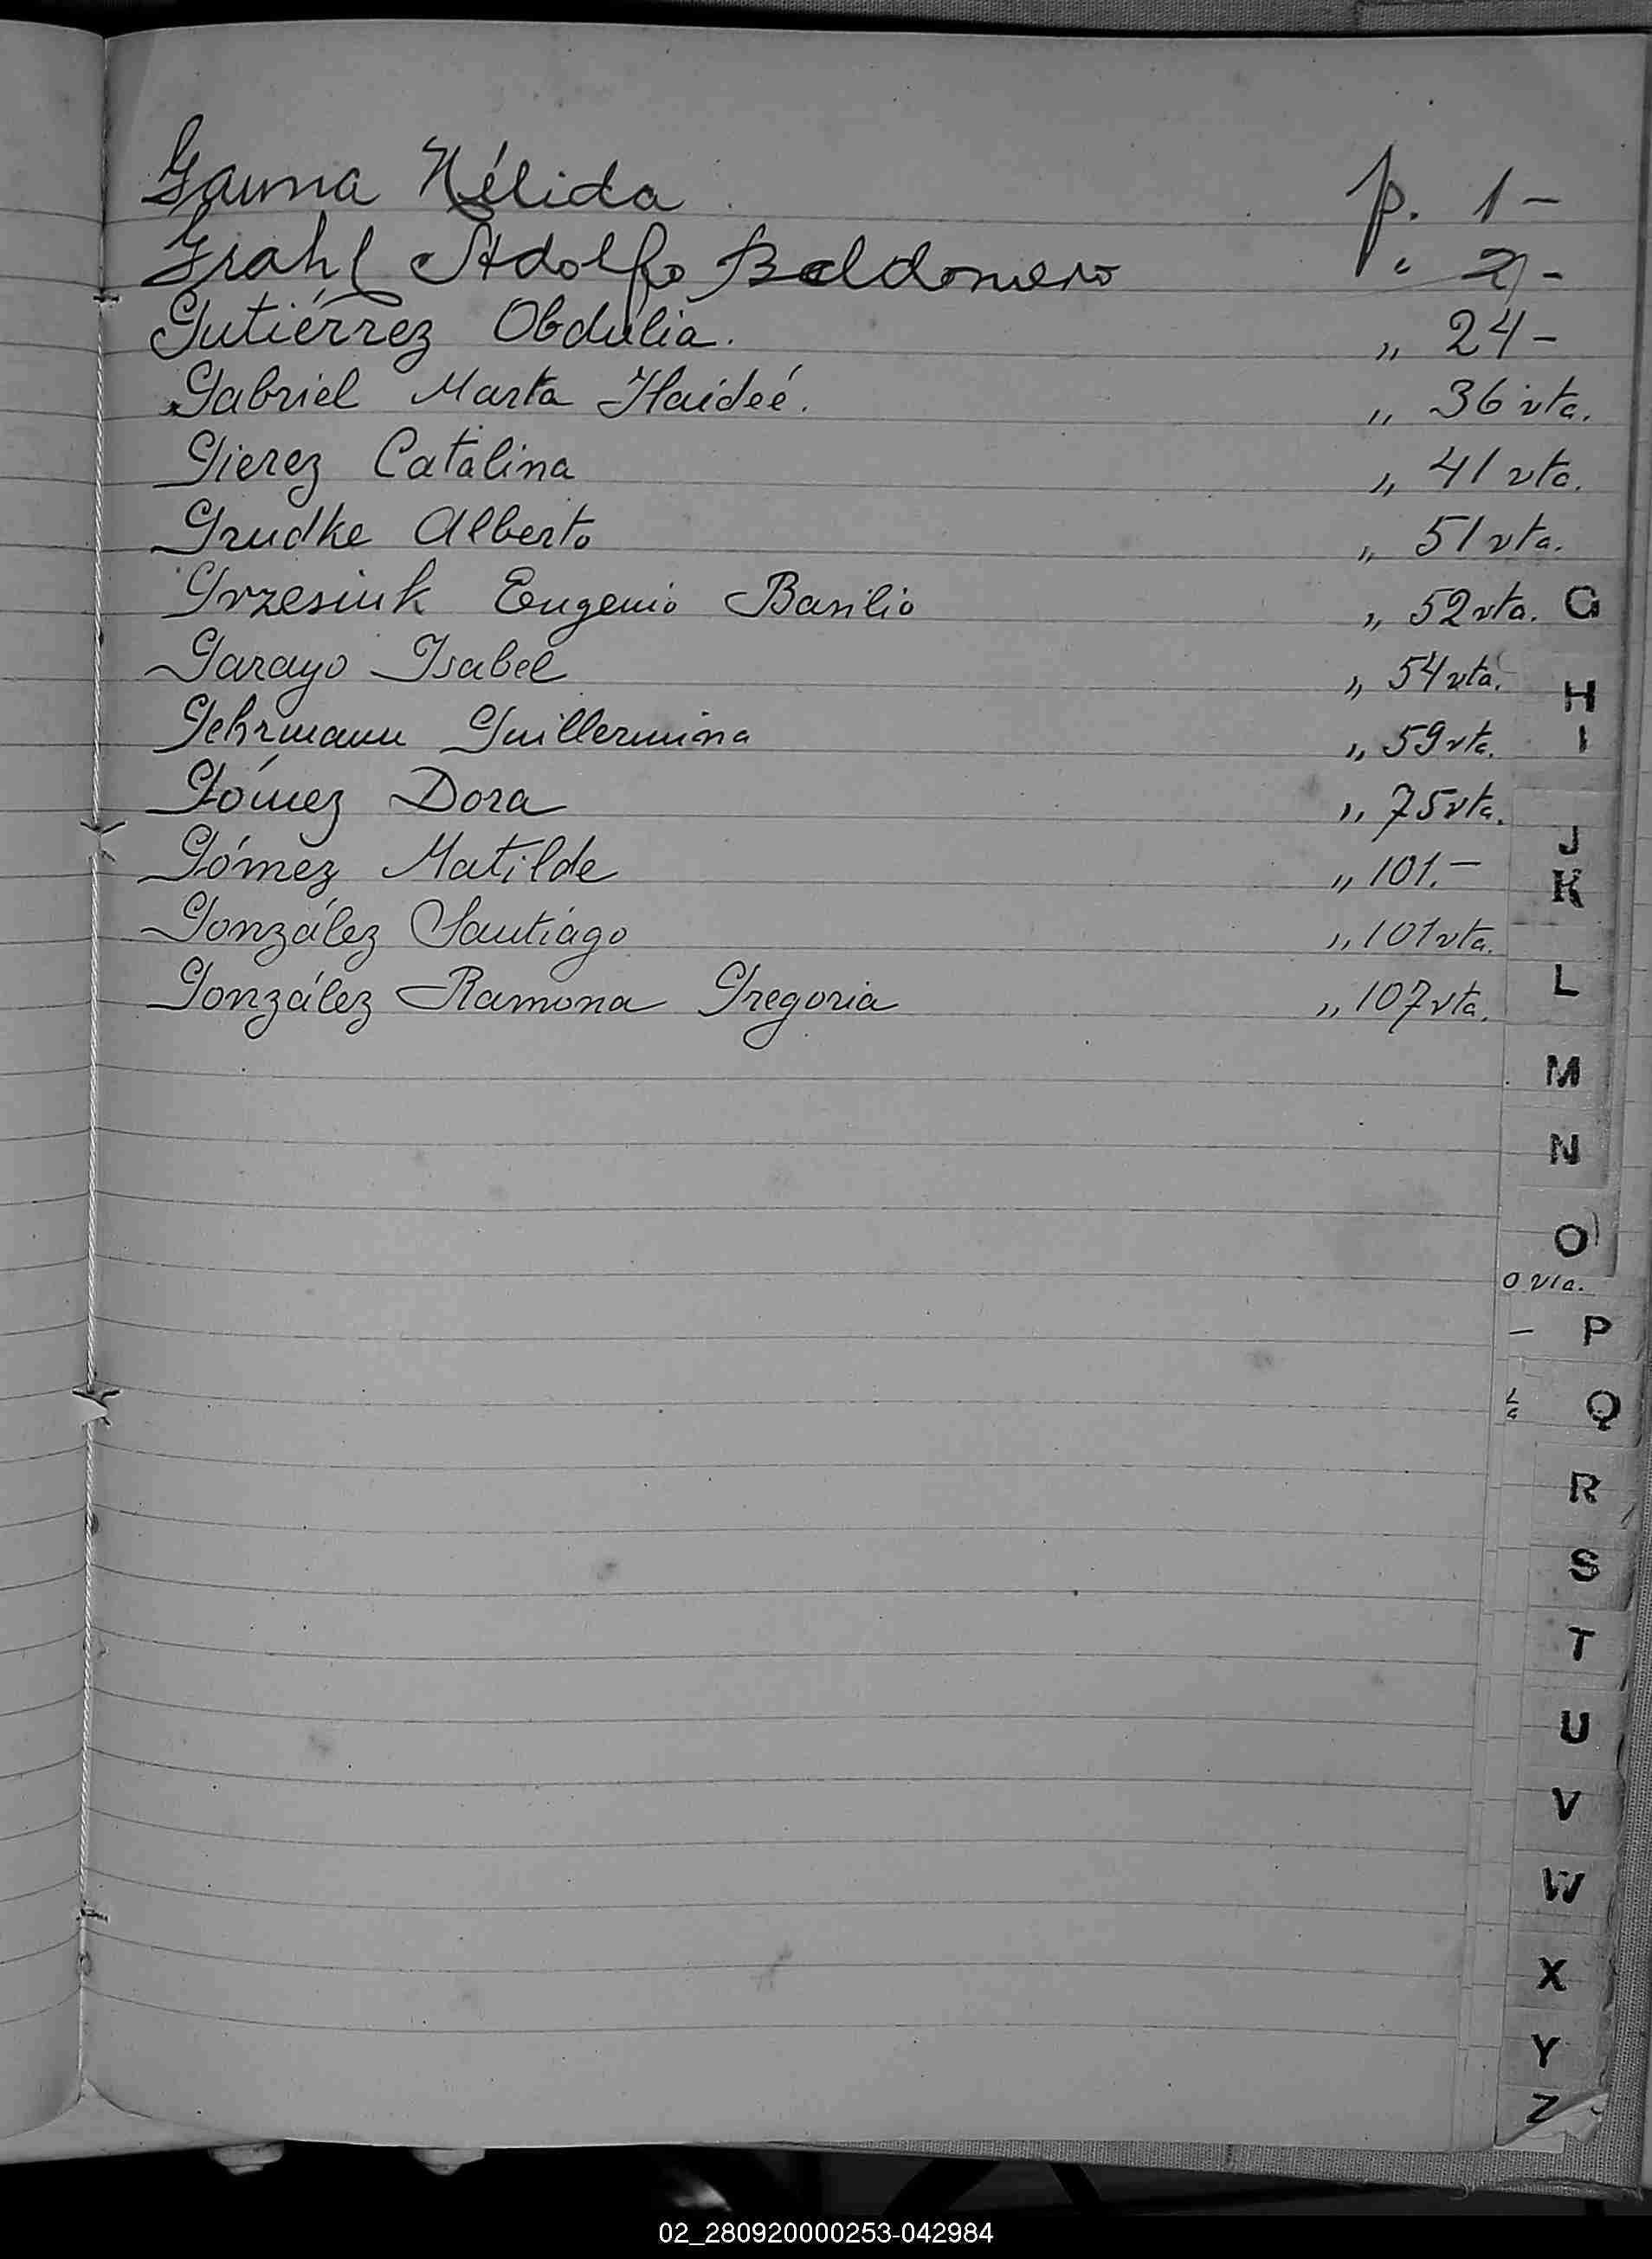 Gauna Nélida p. 1 -
Grahl Adolfo Baldomero " 2 -
Gutiérrez Obdulia. " 24 -
Gabriel Marta Haideé. " 36 vta.
Gierez Catalina " 41 vta.
Grudke Alberto " 51 vta.
Grzesiuk Eugenio Basilio " 52 vta.
Garayo Isabel " 54 vta.
Gehrmann Guillermina " 59 vta.
Gómez Dora " 75 vta.
Gómez Matilde " 101. -
González Santiago " 101 vta.
González Ramona Gregoria " 107 vta.
G
H
I
J
K
L
M
N
O
0 vta.
P
Q
R
S
T
U
V
W
X
Y
Z
02_280920000253-042984